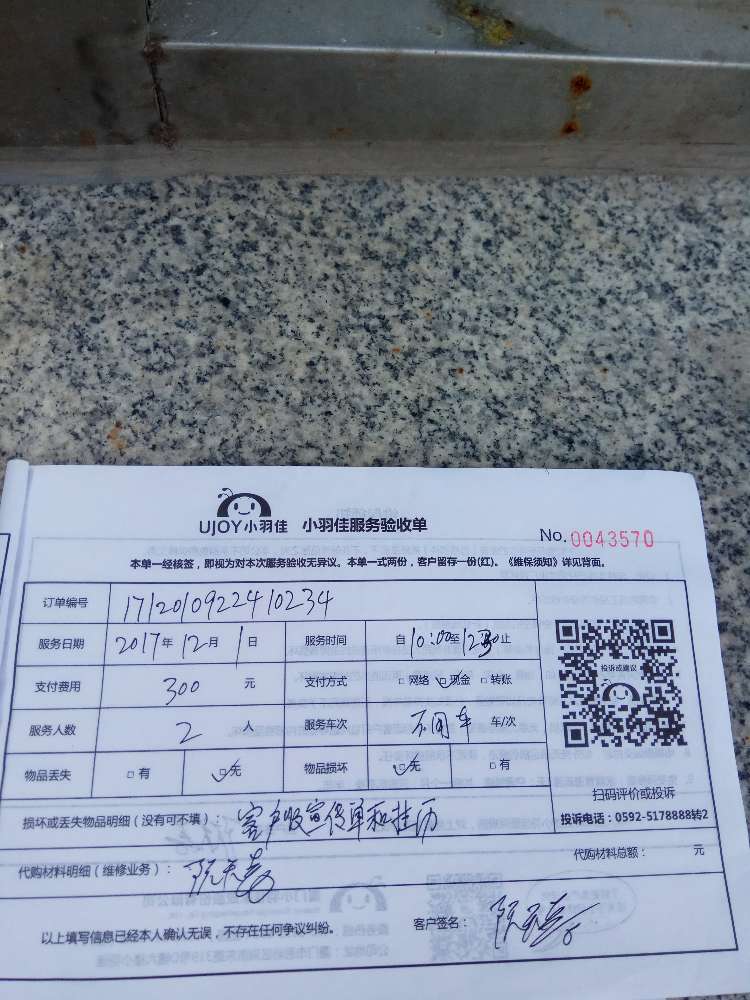 UJOY小羽佳 小羽佳服务验收单
No.0043570
本单一经核签，即视为对本次服务验收无异议。本单一式两份，客户留存一份(红)。《维保须知》详见背面。
订单编号 1712010922410234
服务日期 2017年12月1日 服务时间 自10:00至12:30止
支付费用 300 元 支付方式 □网络 ☑现金 □转账
服务人数 2 人 服务车次 不用车 车/次
物品丢失 □有 ☑无 物品损坏 ☑无 □有
投诉或建议
扫码评价或投诉
投诉电话：0592-5178888转2
损坏或丢失物品明细（没有可不填）：客户收宣传单和挂历
代购材料明细（维修业务）：
代购材料总额： 元
以上填写信息已经本人确认无误，不存在任何争议纠纷。
客户签名：